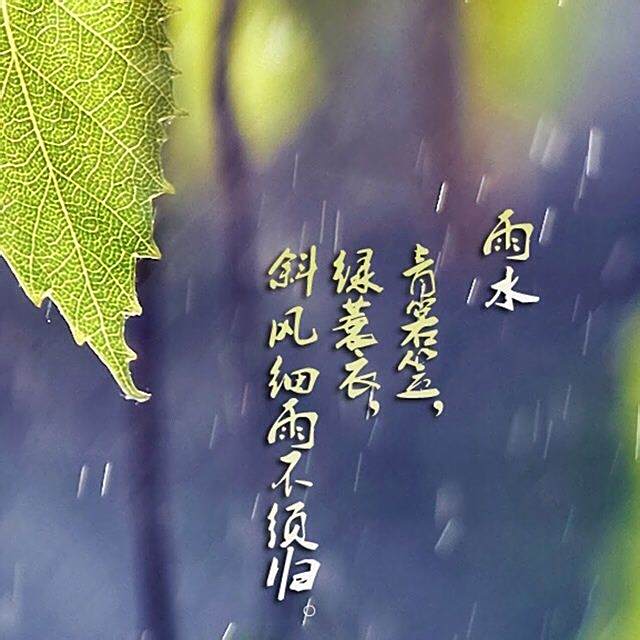 雨水
青箬笠，
绿蓑衣，
斜风细雨不须归。